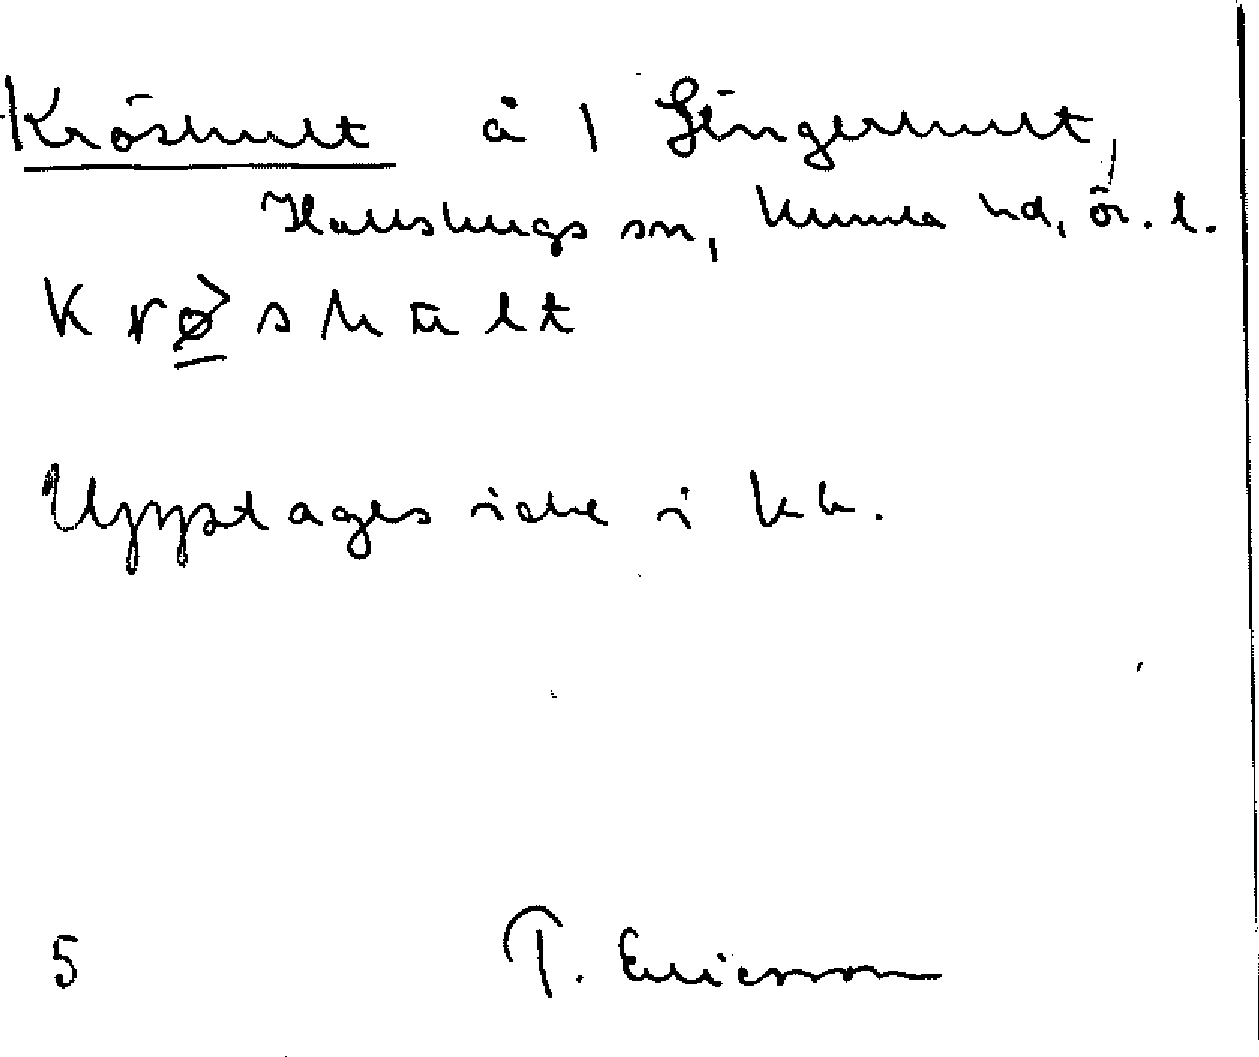 Kröshult å 1 Gingerhult,
Hallsbergs sn, Kumla hd, ör. l.
Krøshult
Upptages icke i kk.
5 T. Ericsson